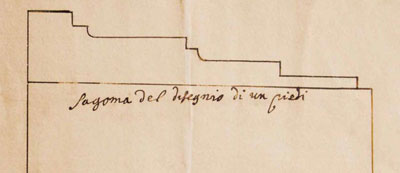 Sagoma del disegnio di un piedi